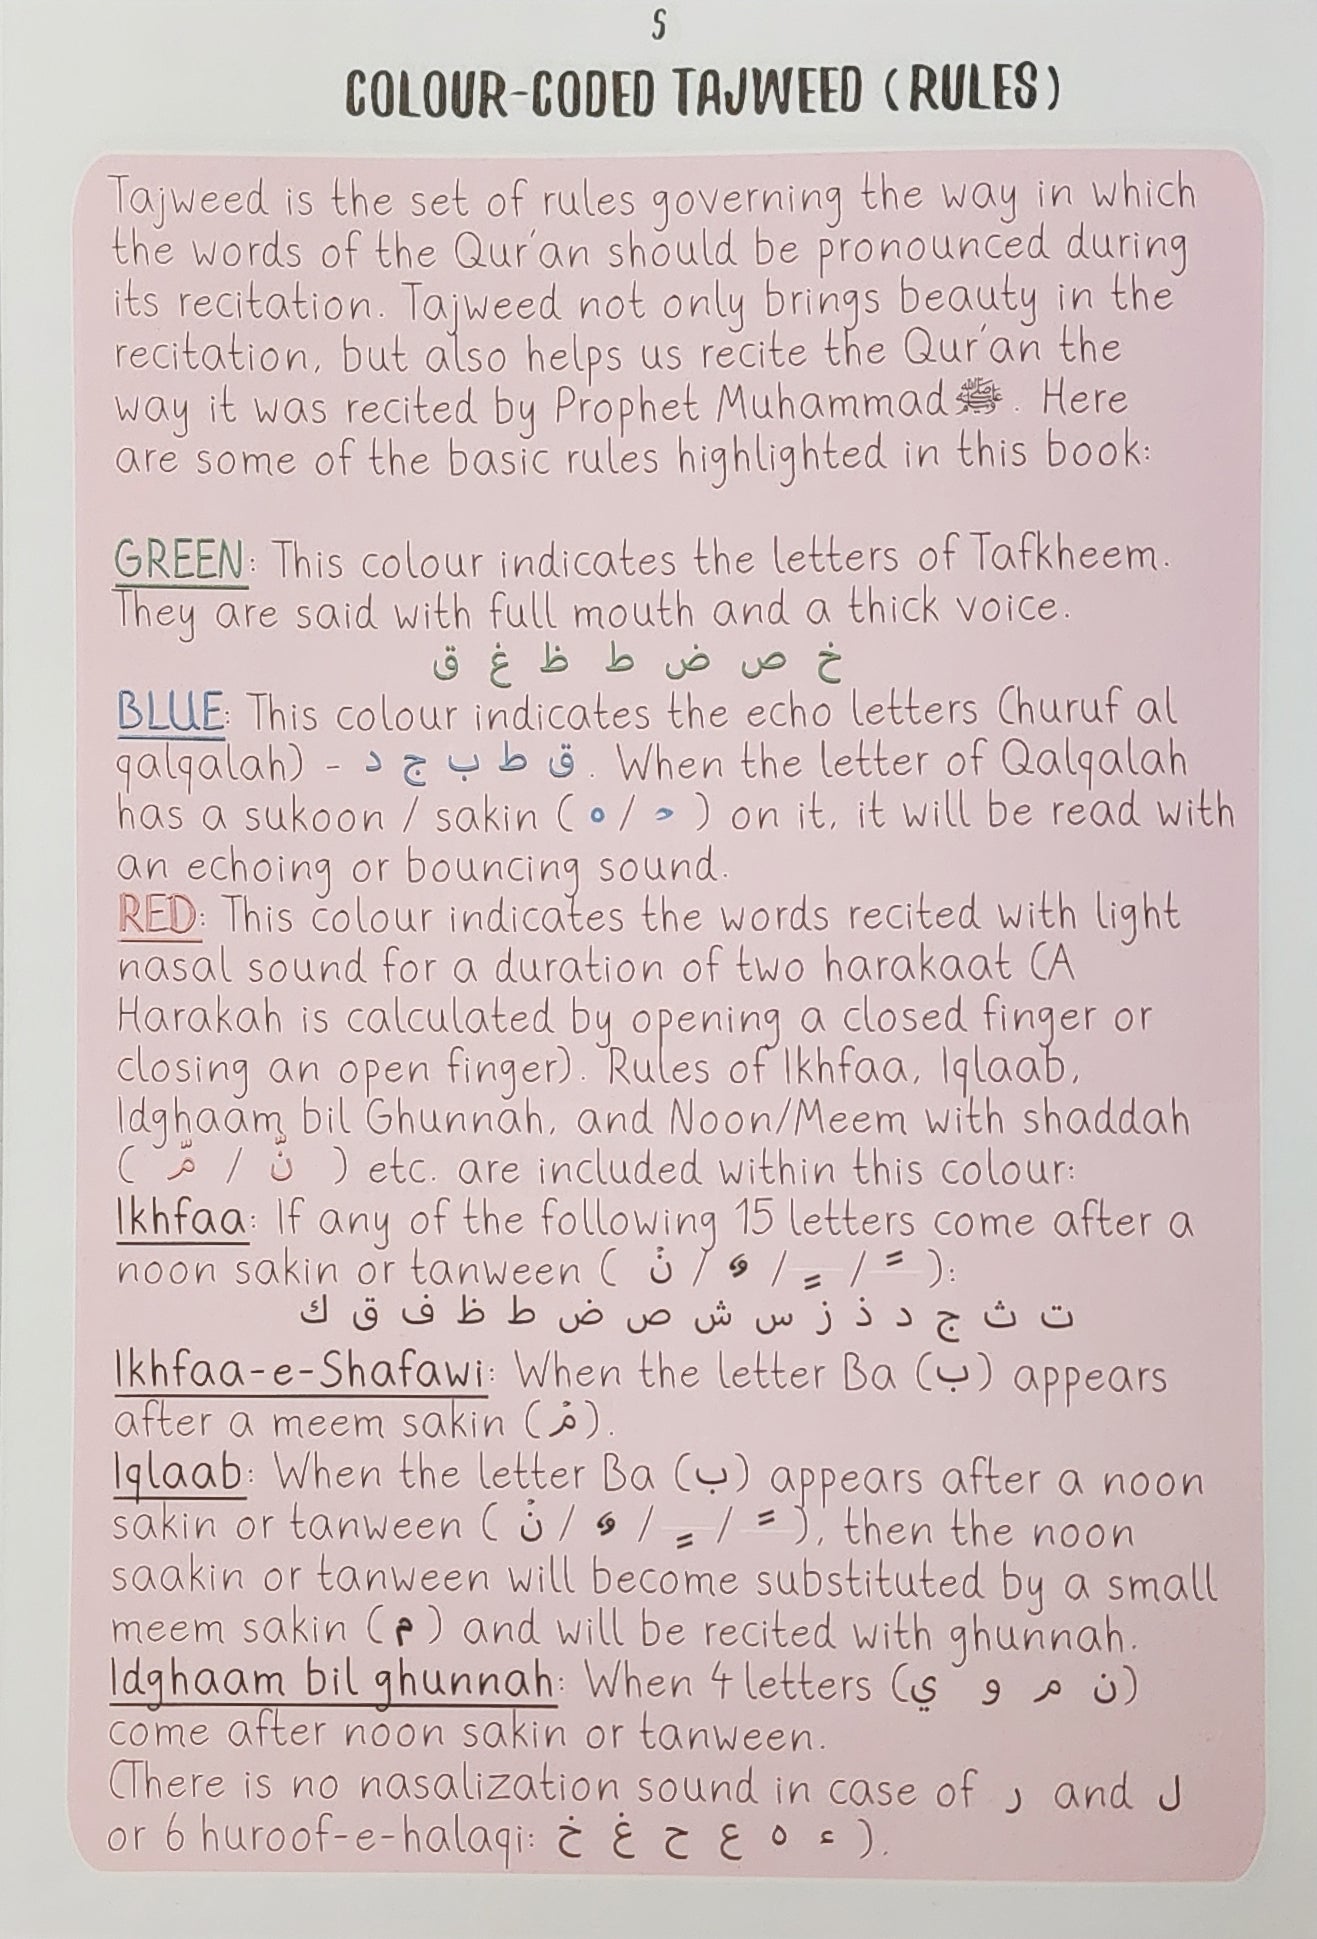 5
COLOUR-CODED TAJWEED (RULES)
Tajweed is the set of rules governing the way in which
the words of the Qur'an should be pronounced during
its recitation. Tajweed not only brings beauty in the
recitation, but also helps us recite the Qur'an the
way it was recited by Prophet Muhammad ﷺ. Here
are some of the basic rules highlighted in this book:
GREEN: This colour indicates the letters of Tafkheem.
They are said with full mouth and a thick voice.
خ ص ض ط ظ غ ق
BLUE: This colour indicates the echo letters (huruf al
qalqalah) - ق ط ب ج د. When the letter of Qalqalah
has a sukoon / sakin ( ه / ۡ ) on it, it will be read with
an echoing or bouncing sound.
RED: This colour indicates the words recited with light
nasal sound for a duration of two harakaat (A
Harakah is calculated by opening a closed finger or
closing an open finger). Rules of Ikhfaa, Iqlaab,
Idghaam bil Ghunnah, and Noon/Meem with shaddah
( مّ / نّ ) etc. are included within this colour:
Ikhfaa: If any of the following 15 letters come after a
noon sakin or tanween ( نۡ / ٌ / ٍ / ً ):
ت ث ج د ذ ز س ش ص ض ط ظ ف ق ك
Ikhfaa-e-Shafawi: When the letter Ba (ب) appears
after a meem sakin (مۡ).
Iqlaab: When the letter Ba (ب) appears after a noon
sakin or tanween ( نۡ / ٌ / ٍ / ً ), then the noon
saakin or tanween will become substituted by a small
meem sakin (م) and will be recited with ghunnah.
Idghaam bil ghunnah: When 4 letters (ن م و ي)
come after noon sakin or tanween.
(There is no nasalization sound in case of ر and ل
or 6 huroof-e-halaqi: ء ه ع ح غ خ ).